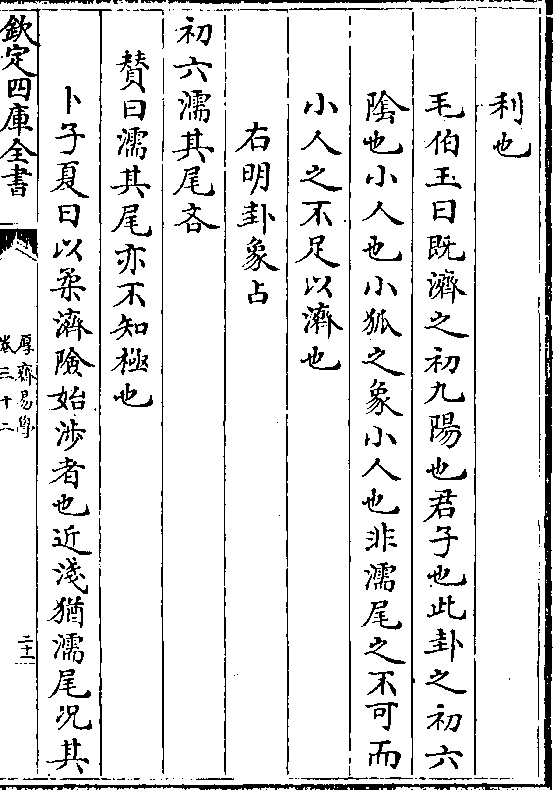 利也
毛伯玉曰既濟之初九陽也君子也此卦之初六
陰也小人也小狐之象小人也非濡尾之不可而
小人之不足以濟也
右明卦象占
初六濡其尾吝
贊曰濡其尾亦不知極也
卜子夏曰以柔濟險始涉者也近淺猶濡尾況其
欽定四庫全書
厚齋易學
卷三十二
二十一